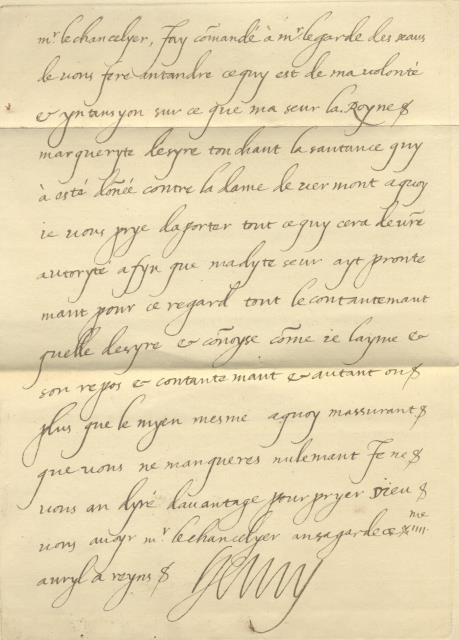 mr. le chancelyer, J'ay cõmandé à mr. le garde des seaus
de vous fere antandre ce quy est de ma volonté
& yntansyon sur ce que ma seur la Royne
margueryte desyre touchant la santance quy
à esté dõnée contre la dame de vermont a quoy
ie vous prye daporter tout ce quy cera de vr̃e
autoryté afyn que madyte seur ayt pronte
mant pour ce regard tout le contantemant
quelle desyre & cõnoyse cõme ie layme &
son repos & contantemant & autant ou
plus que le myen mesme a quoy massurant
que vous ne manqueres nulemant Je ne
vous an dyré davantage pour pryer Dieu
vous avoyr mr. le chancelyer an sa garde ce iiii.me
avryl a reyns Henry